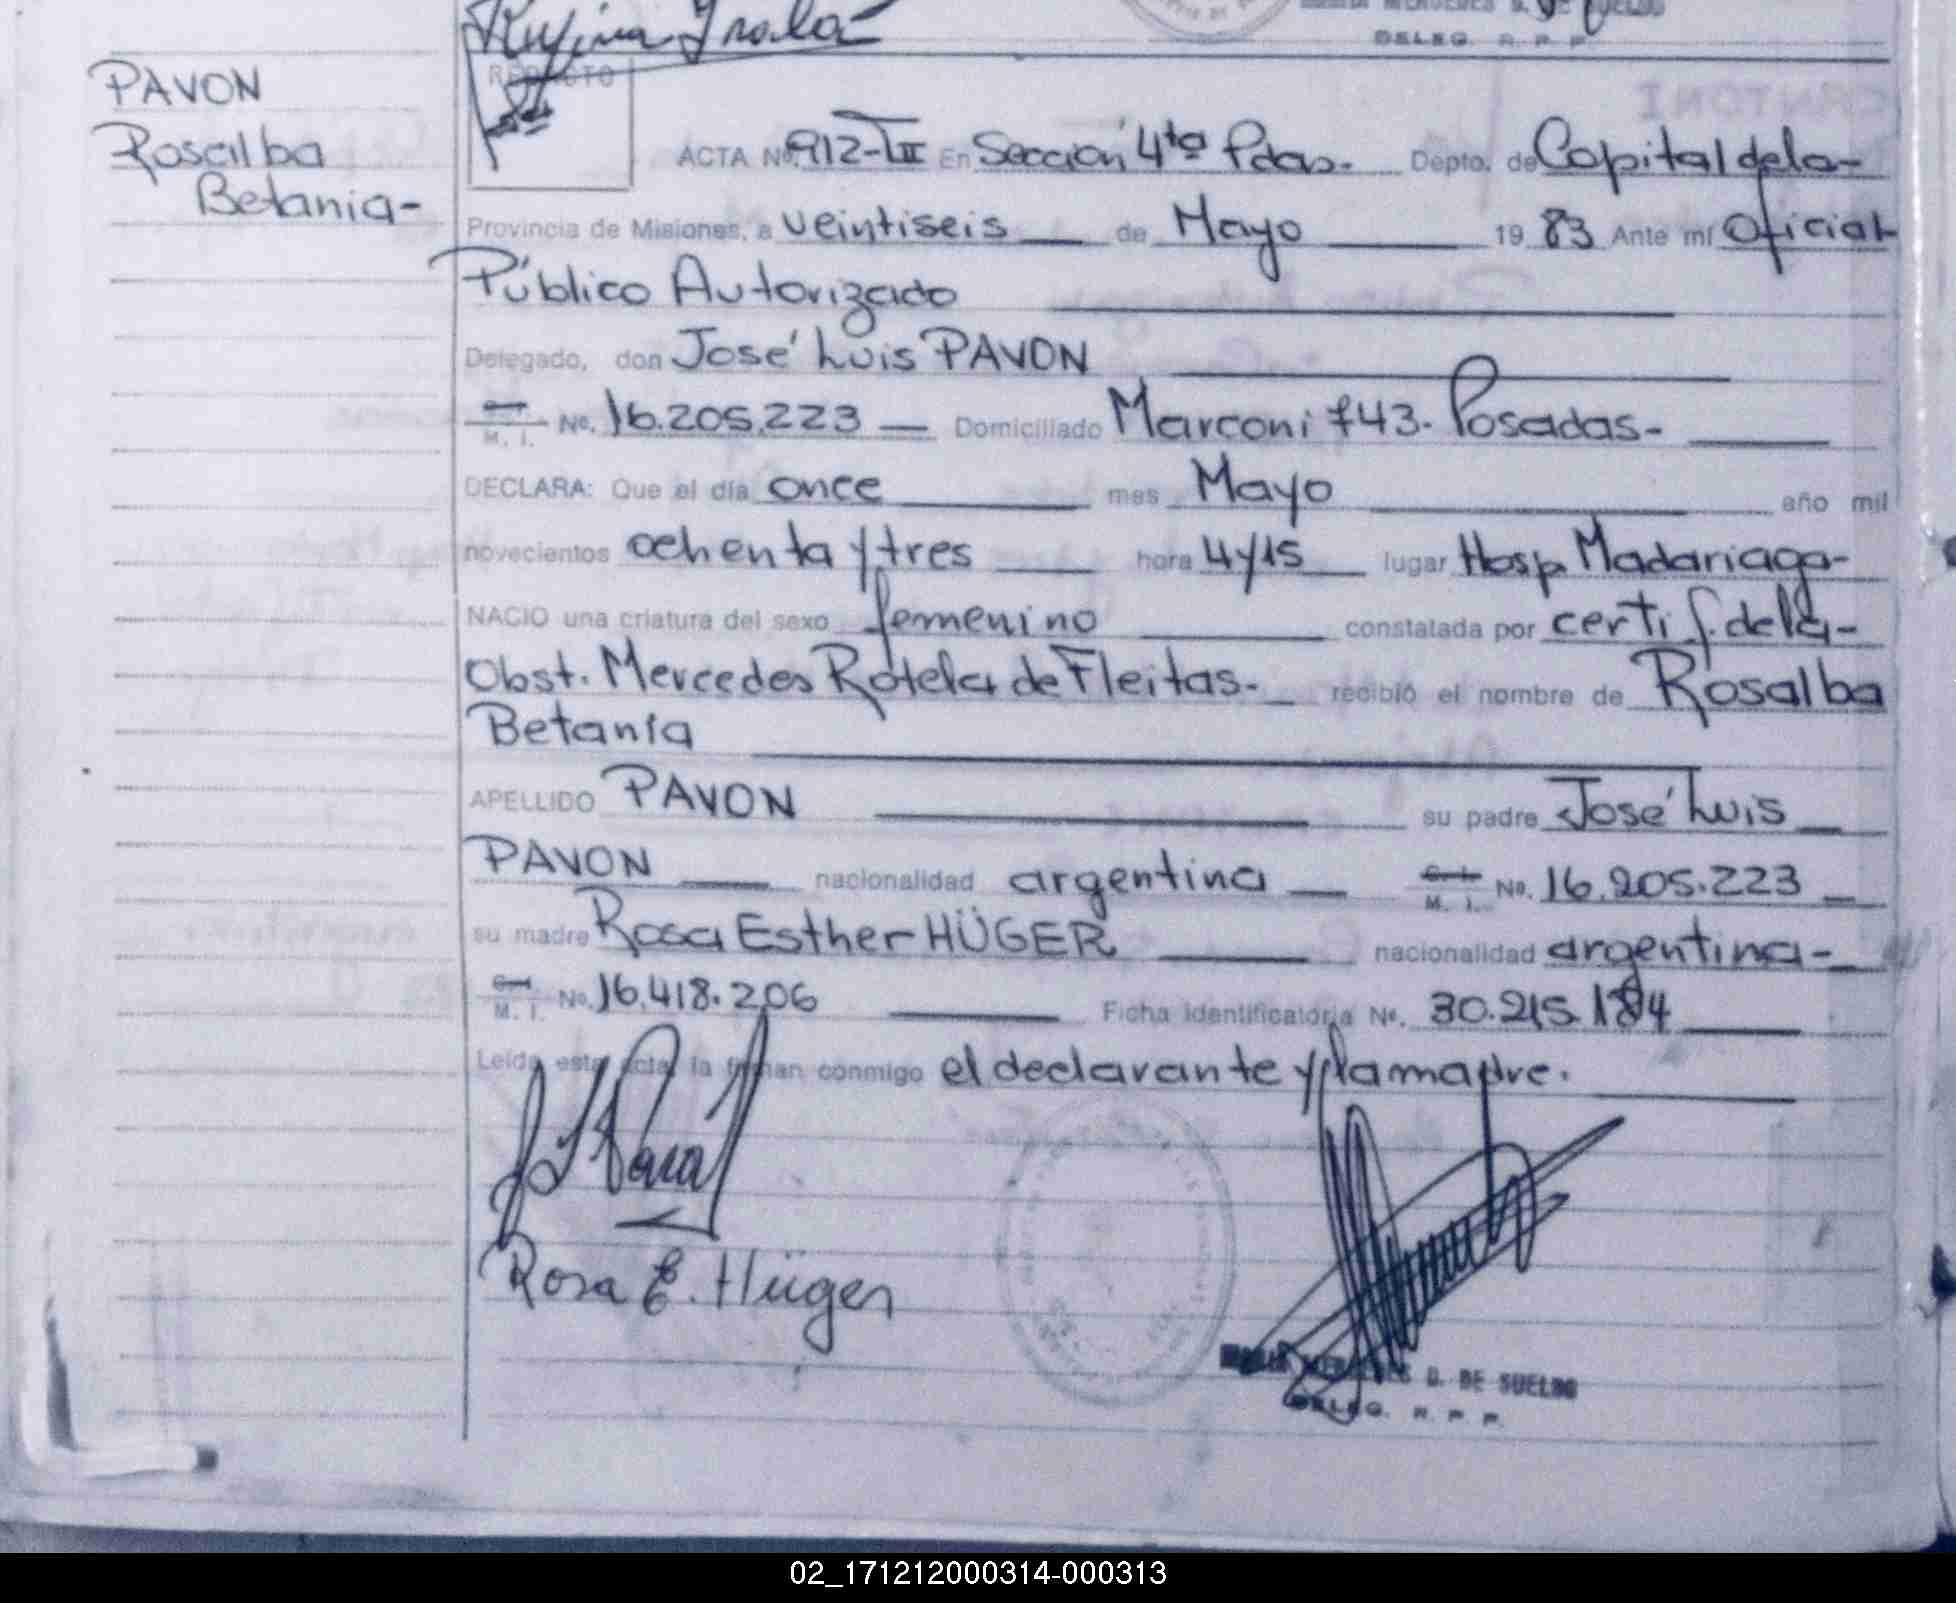 DELEG. R. P. P.
PAVON
Rosalba
Betania-
ACTA Nº 912-TII En Sección 4ta Pdas.- Depto. de Capital de la-
Provincia de Misiones, a veintiseis de Mayo 19 83 Ante mí Oficial
Público Autorizado
Delegado, don José Luis PAVON
C. I. M. I. No. 16.205.223 Domiciliado Marconi 743. Posadas-
DECLARA: Que el día once mes Mayo año mil
novecientos ochenta y tres hora 4y15 lugar Hosp Madariaga-
NACIO una criatura del sexo femenino constatada por certif. de la-
Obst. Mercedes Rotela de Fleitas.- recibió el nombre de Rosalba
Betania
APELLIDO PAVON su padre José Luis
PAVON nacionalidad argentina C. I. M. I. No. 16.205.223
su madre Rosa Esther HÜGER nacionalidad argentina-
C. I. M. I. No. 16.418.206 Ficha Identificatoria No. 30.215.184
Leída esta acta, la firman conmigo el declarante y la madre.
Rosa E. Hüger
D. DE SUELDO
DELEG. R. P. P.
02_171212000314-000313